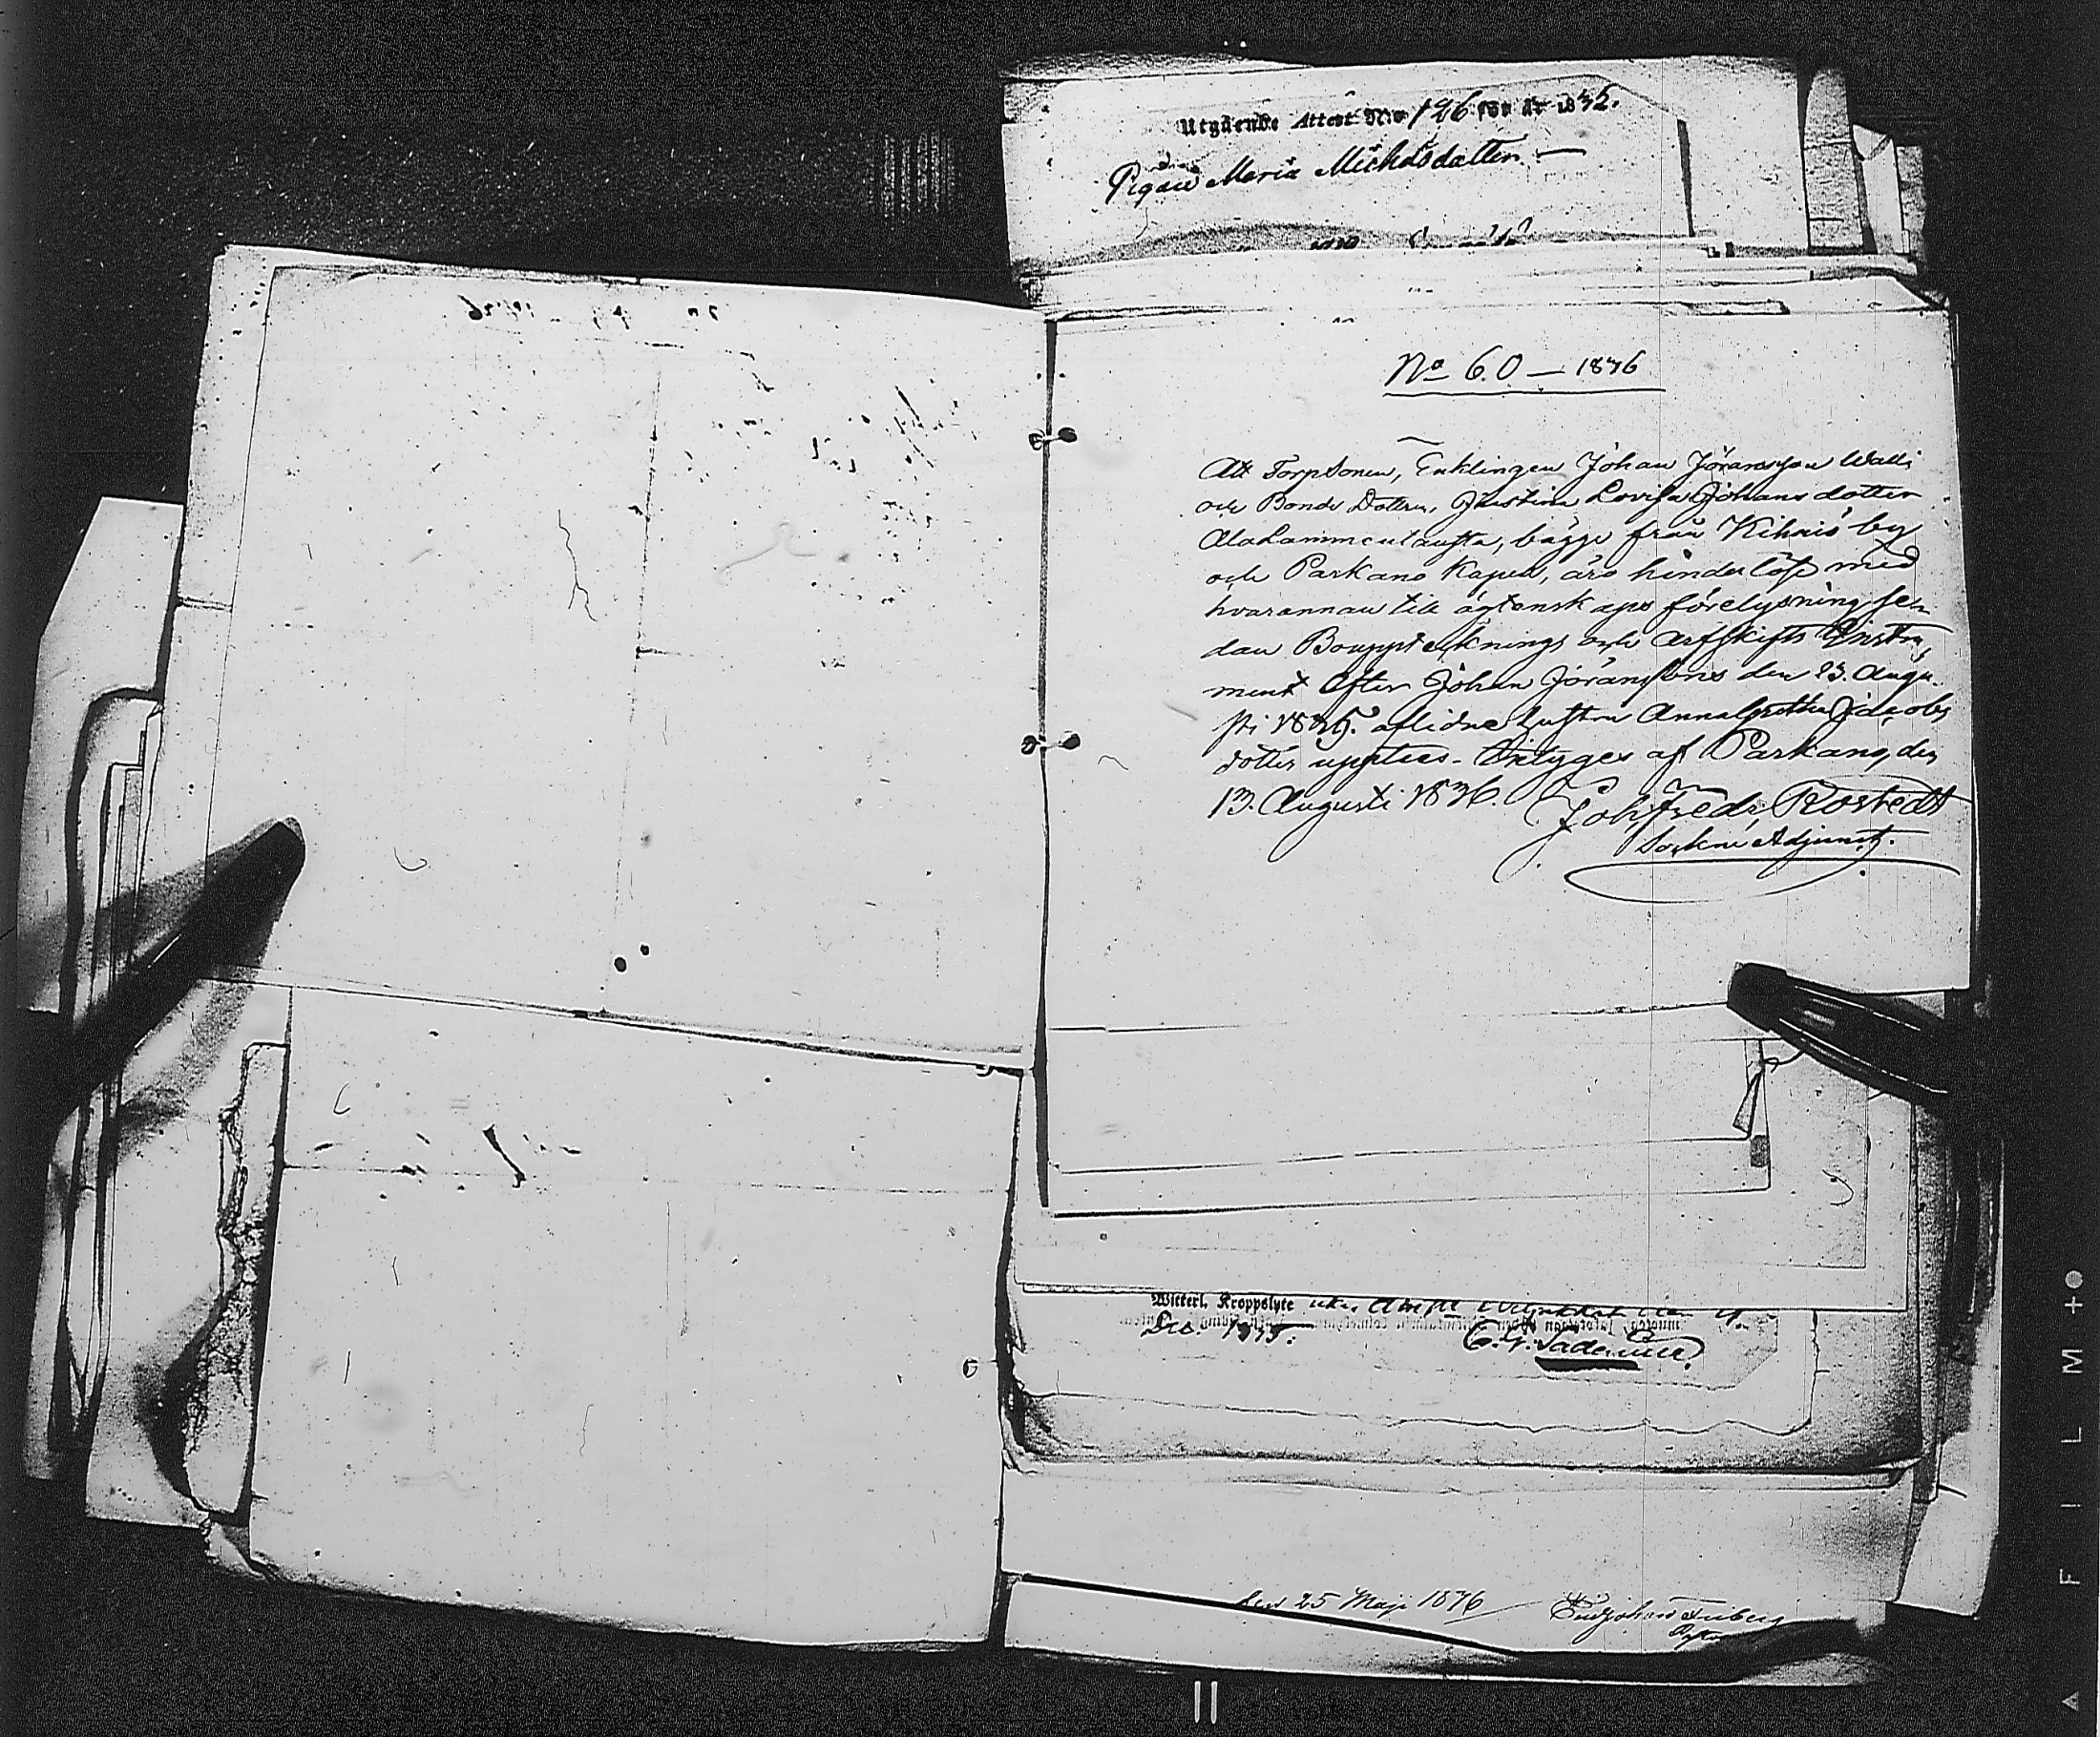 Utgående Attest Nro 126 för år 1835.
Pigan Maria Michelsdotter. —
No 60 — 1836
Att Torpsonen, Enklingen Johan Jöransson Walli
och Bonde Dottren, Justina Lovisa Johansdotter
Ala, bägge från Kihniö by
och Parkano Kapell, äro hinderlöse med
hvarannan till ägtenskaps förelysning se-
dan Bouppteknings och Arfskifts Instru
ment efter Johan Jöranssons den 23. Augu-
sti 1835. aflidne hustru Anna Greta Jacobs
dotter uppties. Intyges af Parkano, den
13. Augusti 1836. Joh. Fredr. Rostedt
Sockne Adjunct.
Witterl. Kroppslyte
Dec. 1835.
den 25 Maji 1836